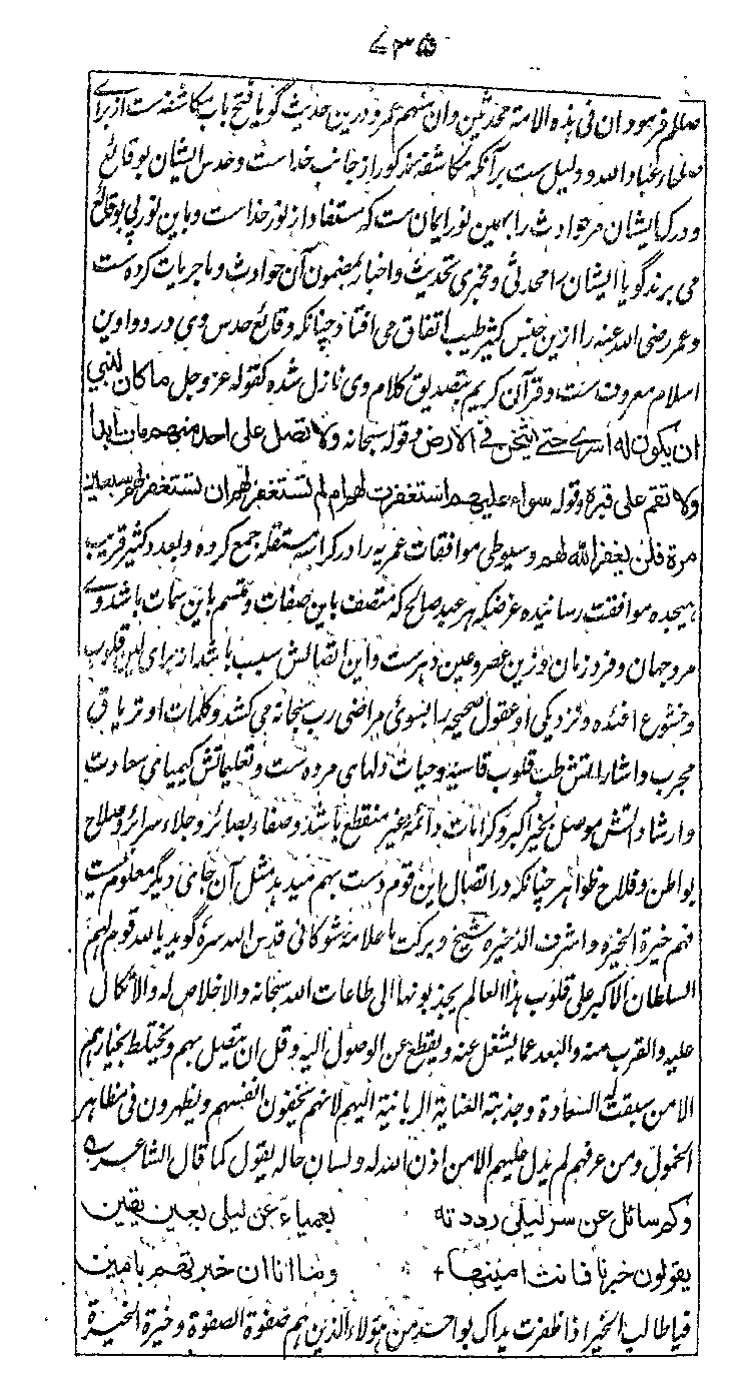 ۷۳۵
صللم فرمود ان فی ہذہ الامۃ محدثین وان منہم عمرو درین حدیث گویا فتح باب مکاشفہ ست از برای
صلحاء عباد اللہ و دلیل ست بر آنکہ مکاشفہ مذکور از جانب خداست و حدس ایشان بوقائع
و درک ایشان مر حوادث را بہمین نور ایمان ست کہ مستفاد از نور خداست و باین نور پی بوقائع
می برند گویا ایشان را محدثی و مخبری تحدیث و اخبار بمضمون آن حوادث و ماجریات کردہ ست
و عمر رضی اللہ عنہ را ازین جنس کثیر طیب اتفاق می افتاد چنانکہ وقائع حدس وی در دواوین
اسلام معروف ست و قرآن کریم بتصدیق کلام وی نازل شدہ کقولہ عز و جل ما کان لنبی
ان یکون لہ اسری حتی یثخن فی الارض و قولہ سبحانہ ولا تصل علی احد منهم مات ابدا
ولا تقم علی قبرہ و قولہ سواء علیهم استغفرت لهم ام لم تستغفر لهم ان تستغفر لهم سبعین
مرۃ فلن یغفر اللہ لهم و سیوطی موافقات عمریہ را در کراسہ مستقلہ جمع کردہ و بعدد کثیر قریب
بہیجدہ موافقت رسانیدہ غرضکہ ہر عبد صالح کہ متصف باین صفات و متسم باین سمات باشد وی
مرد جہان و فرد زمان و زین عصر و عین دہرست و این اتصالش سبب باشد از برای لین قلوب
و خشوع افئدہ و نزدیکی او عقول صحیحہ را بسوی مراضی رب سبحانہ می کشد و کلمات او تریاق
مجرب و اشاراتش طب قلوب قاسیہ و حیات دلہای مردہ ست و تعلیماتش کیمیای سعادت
و ارشاداتش موصل بخیر اکبر و کرامات دائمہ غیر منقطع باشد و صفاء بصائر و جلاء سرائر و صلاح
بواطن و فلاح ظواہر چنانکہ در اتصال این قوم دست بہم میدہد مثل آن جای دیگر معلوم نیست
فہم خیرۃ الخیرہ و اشرف الذخیرہ شیخ و برکت ما علامہ شوکانی قدس اللہ سرہ گوید یا للہ قوم لہم
السلطان الاکبر علی قلوب ہذا العالم یجذبونہا الی طاعات اللہ سبحانہ والاخلاص لہ والاتکال
علیہ والقرب منہ والبعد عما یشغل عنہ و یقطع عن الوصول الیہ و قل ان یتصل بہم و یختلط بخیارہم
الا من سبقت لہ السعادۃ و جذبتہ العنایۃ الربانیۃ الیہم لانہم یخفون انفسہم و یظہرون فی مظاہر
الخمول و من عرفہم لم یدل علیہم الا من اذن اللہ لہ و لسان حالہ یقول کما قال الشاعر
وکم سائل عن سر لیلی رددتہ بعمیاء عن لیلی بعین یقین
یقولون خبرنا فانت امینها وما انا ان خبرتهم بامین
فیا طالب الخیر اذا ظفرت یداک بواحد من ہولاء الذین ہم صفوۃ الصفوۃ و خیرۃ الخیرۃ